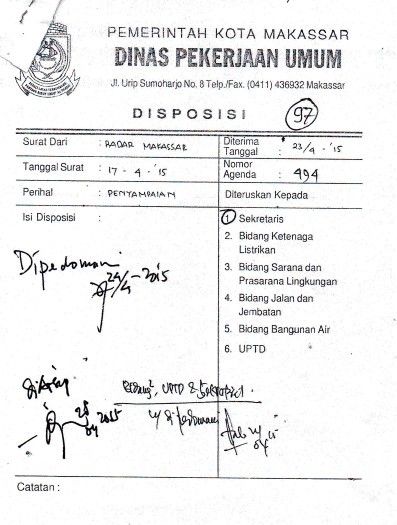 PEMERINTAH KOTA MAKASSAR
DINAS PEKERJAAN UMUM
Jl. Urip Sumoharjo No. 8 Telp./Fax. (0411) 436932 Makassar
DISPOSISI
97
Surat Dari : RADAR MAKASSAR
Diterima Tanggal : 23/4 - '15
Tanggal Surat : 17 - 4 - '15
Nomor Agenda : 494
Perihal : PENYAMPAIAN
Diteruskan Kepada
Isi Disposisi :
1. Sekretaris
2. Bidang Ketenaga Listrikan
3. Bidang Sarana dan Prasarana Lingkungan
4. Bidang Jalan dan Jembatan
5. Bidang Bangunan Air
6. UPTD
Dipedomani
24/4-2015
Bidang², UPTD & Sekretariat.
u/ dipedomani
Catatan :